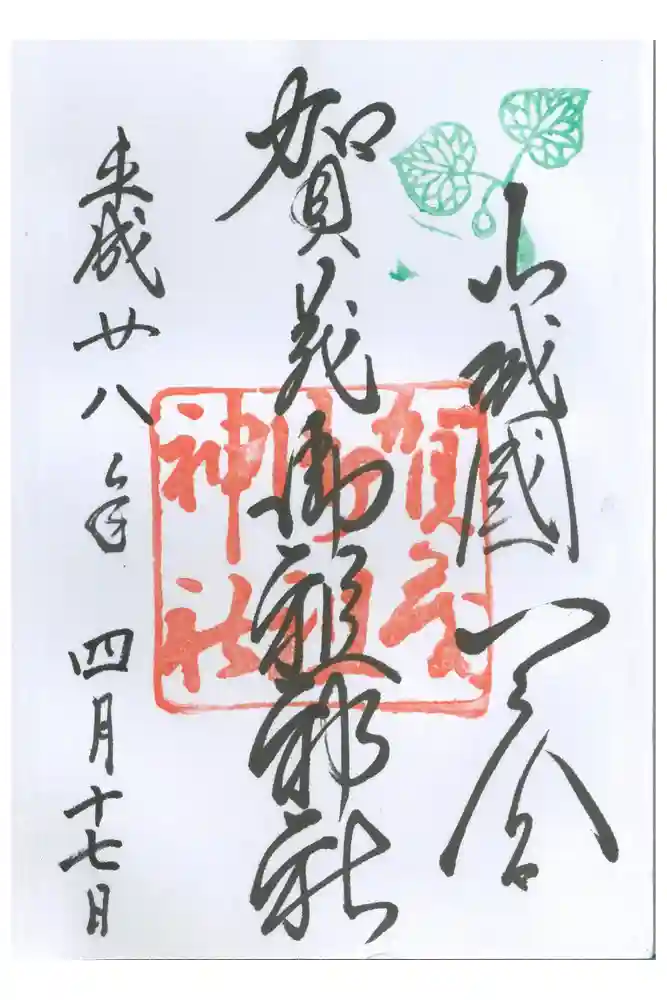 山城國一之宮
賀茂御祖神社
平成廿八年 四月十七日
賀茂
御祖
神社